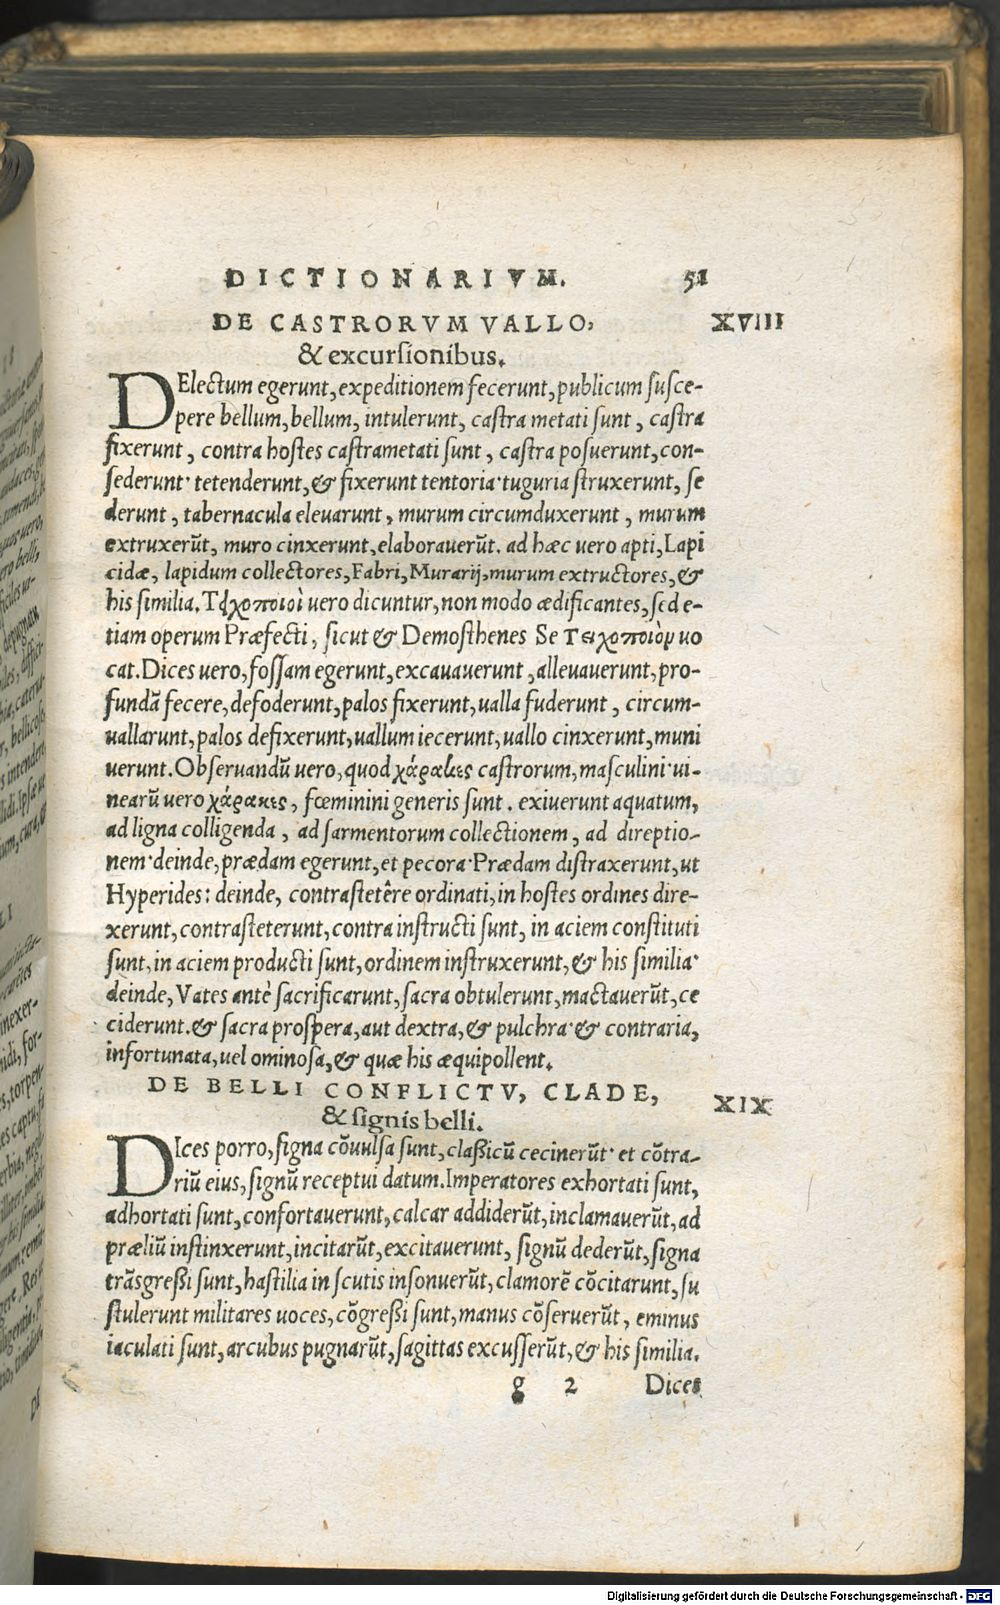 DICTIONARIVM. 51
DE CASTRORVM VALLO, XVIII
& excursionibus.
DElectum egerunt, expeditionem fecerunt, publicum susce-
pere bellum, bellum, intulerunt, castra metati sunt, castra
fixerunt, contra hostes castrametati sunt, castra posuerunt, con-
sederunt· tetenderunt, & fixerunt tentoria· tuguria struxerunt, se
derunt, tabernacula eleuarunt, murum circumduxerunt, murum
extruxerūt, muro cinxerunt, elaborauerūt. ad hæc uero apti, Lapi
cidæ, lapidum collectores, Fabri, Murarij, murum extructores, &
his similia. Τειχοποιοὶ uero dicuntur, non modo ædificantes, sed e-
tiam operum Præfecti, sicut & Demosthenes Se Τειχοποιὸν uo
cat. Dices uero, fossam egerunt, excauauerunt, alleuauerunt, pro-
fundā fecere, defoderunt, palos fixerunt, ualla fuderunt, circum-
uallarunt, palos defixerunt, uallum iecerunt, uallo cinxerunt, muni
uerunt. Obseruandū uero, quod χάρακες castrorum, masculini· ui-
nearū uero χάρακες, fœminini generis sunt. exiuerunt aquatum,
ad ligna colligenda, ad sarmentorum collectionem, ad direptio-
nem· deinde, prædam egerunt, et pecora· Prædam distraxerunt, ut
Hyperides: deinde, contrastetêre ordinati, in hostes ordines dire-
xerunt, contrasteterunt, contra instructi sunt, in aciem constituti
sunt, in aciem producti sunt, ordinem instruxerunt, & his similia·
deinde, Vates antè sacrificarunt, sacra obtulerunt, mactauerūt, ce
ciderunt. & sacra prospera, aut dextra, & pulchra· & contraria,
infortunata, uel ominosa, & quæ his æquipollent.
DE BELLI CONFLICTV, CLADE, XIX
& signis belli.
DIces porro, signa cōuulsa sunt, classicū cecinerūt· et cōtra-
riū eius, signū receptui datum. Imperatores exhortati sunt,
adhortati sunt, confortauerunt, calcar addiderūt, inclamauerūt, ad
præliū instinxerunt, incitarūt, excitauerunt, signū dederūt, signa
trāsgressi sunt, hastilia in scutis insonuerūt, clamorē cōcitarunt, su
stulerunt militares uoces, cōgressi sunt, manus cōseruerūt, eminus
iaculati sunt, arcubus pugnarūt, sagittas excusserūt, & his similia.
g 2 Dices
Digitalisierung gefördert durch die Deutsche Forschungsgemeinschaft - DFG